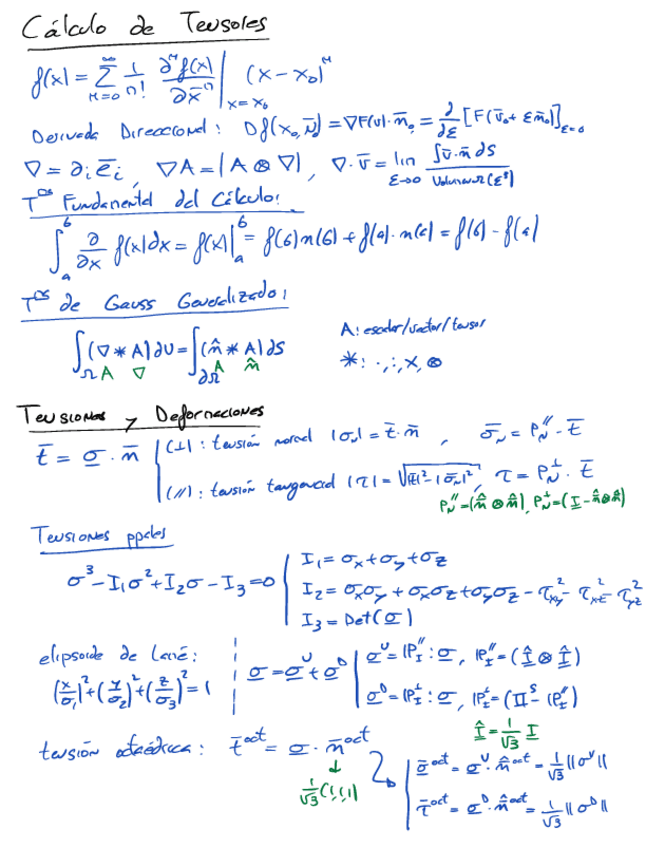 Cálculo de Tensores
f(x) = Σ_{n=0}^{∞} 1/n! ∂ⁿf(x)/∂x̄ⁿ |_{x=x₀} (x-x₀)ⁿ
Derivada Direccional: Df(x₀,N̄) = ∇F(u)·n̄₀ = ∂/∂ε [F(ū₀+εn̄₀)]_{ε=0}
∇ = ∂ᵢēᵢ, ∇A = |A⊗∇|, ∇·v̄ = lim_{ε→0} ∫v̄·n̄ dS / Volumen Ω(ε³)
T^{os} Fundamental del Cálculo:
∫_a^b ∂/∂x f(x)dx = f(x)|_a^b = f(b)n(b)+f(a)·n(a) = f(b)-f(a)
T^{os} de Gauss Generalizado:
∫_Ω(∇*A)dU = ∫_{∂Ω}(n̂*A)dS A: escalar/vector/tensor
A ∇ A n̂ *: ·, :, ×, ⊗
Tensiones y Deformaciones
t̄ = σ·n̄ | (⊥): tensión normal |σₙ| = t̄·n̄, σ̄_N = P_N^{//}·t̄
(//): tensión tangencial |τ| = √(|t̄|²-|σ̄ₙ|²), τ = P_N^⊥·t̄
P_N^{//}=(n̂⊗n̂), P_N^⊥=(I-n̂⊗n̂)
Tensiones ppales
σ³-I₁σ²+I₂σ-I₃=0 | I₁=σx+σy+σz
I₂=σxσy+σxσz+σyσz-τ²xy-τ²xz-τ²yz
I₃=Det(σ)
elipsoide de Lamé:
(x/σ₁)²+(y/σ₂)²+(z/σ₃)²=1
σ=σ^U+σ^D | σ^U=ℙ_I^{//}:σ, ℙ_I^{//}=(Î⊗Î)
σ^D=ℙ_I^⊥:σ, ℙ_I^⊥=(𝕀^S-ℙ_I^{//})
Î=1/√3 I
tensión octaédrica: t̄^{oct}=σ·n̄^{oct}
1/√3(1,1,1)
σ̄^{oct}=σ^U·n̂^{oct}=1/√3||σ^U||
τ̄^{oct}=σ^D·n̂^{oct}=1/√3||σ^D||